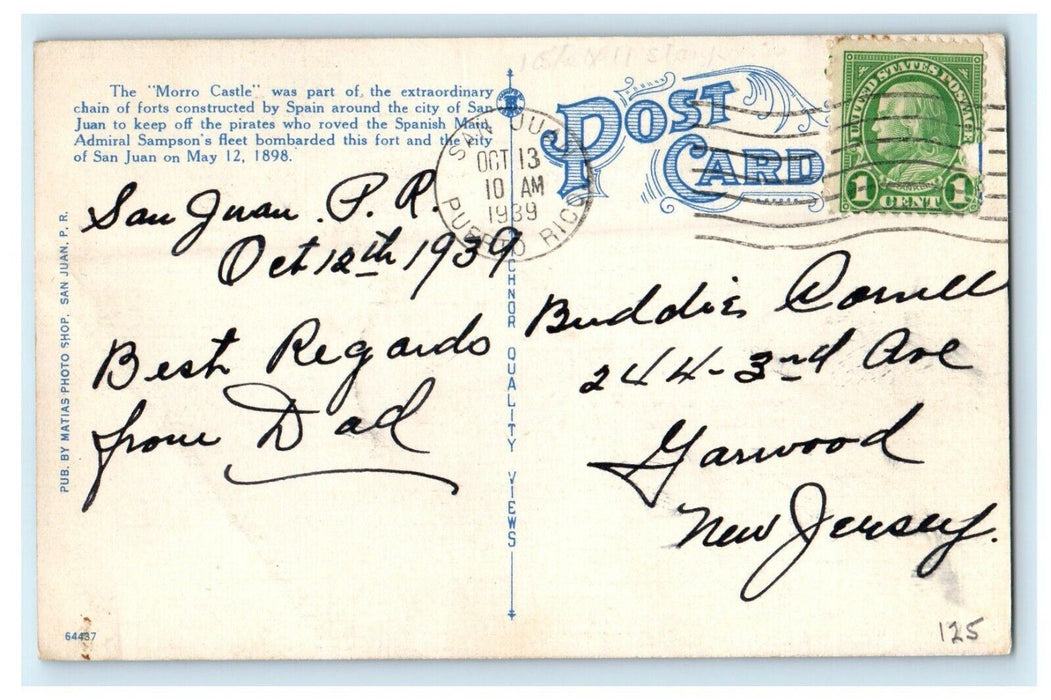 The "Morro Castle" was part of the extraordinary
chain of forts constructed by Spain around the city of San
Juan to keep off the pirates who roved the Spanish Main.
Admiral Sampson's fleet bombarded this fort and the city
of San Juan on May 12, 1898.
POST
CARD
SAN JUAN
OCT 13
10 AM
1939
PUERTO RICO
UNITED STATES POSTAGE
FRANKLIN
1 CENT 1
San Juan. P. R.
Oct 12th 1939
Best Regards
from Dad
Buddie
244-3rd Ave
Garwood
New Jersey.
PUB. BY MATIAS PHOTO SHOP, SAN JUAN, P. R.
TICHNOR QUALITY VIEWS
64437
125